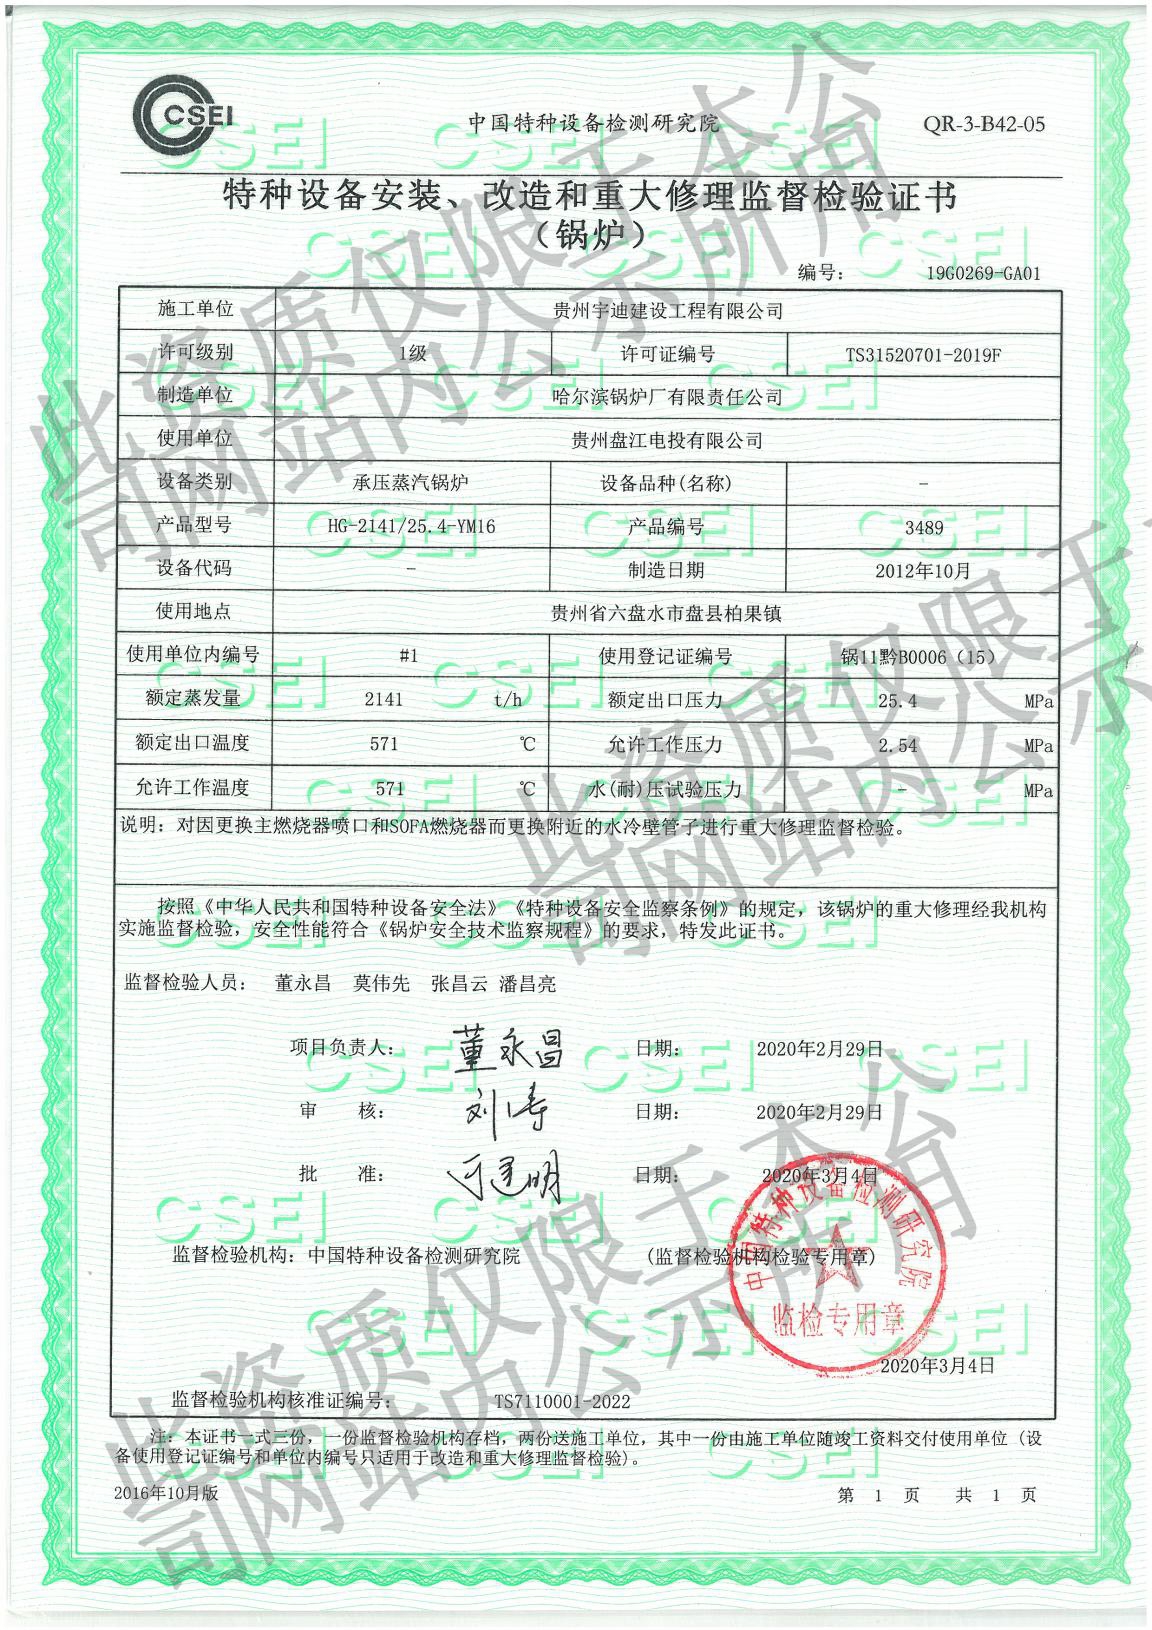 CSEI
中国特种设备检测研究院
QR-3-B42-05
特种设备安装、改造和重大修理监督检验证书
（锅炉）
编号： 19G0269-GA01
施工单位 贵州宇迪建设工程有限公司
许可级别 1级 许可证编号 TS31520701-2019F
制造单位 哈尔滨锅炉厂有限责任公司
使用单位 贵州盘江电投有限公司
设备类别 承压蒸汽锅炉 设备品种(名称) -
产品型号 HG-2141/25.4-YM16 产品编号 3489
设备代码 - 制造日期 2012年10月
使用地点 贵州省六盘水市盘县柏果镇
使用单位内编号 #1 使用登记证编号 锅11黔B0006（15）
额定蒸发量 2141 t/h 额定出口压力 25.4 MPa
额定出口温度 571 ℃ 允许工作压力 2.54 MPa
允许工作温度 571 ℃ 水(耐)压试验压力 - MPa
说明：对因更换主燃烧器喷口和SOFA燃烧器而更换附近的水冷壁管子进行重大修理监督检验。
按照《中华人民共和国特种设备安全法》《特种设备安全监察条例》的规定，该锅炉的重大修理经我机构
实施监督检验，安全性能符合《锅炉安全技术监察规程》的要求，特发此证书。
监督检验人员： 董永昌 莫伟先 张昌云 潘昌亮
项目负责人： 董永昌 日期： 2020年2月29日
审 核： 刘涛 日期： 2020年2月29日
批 准： 日期： 2020年3月4日
监督检验机构：中国特种设备检测研究院 (监督检验机构检验专用章)
中国特种设备检测研究院
监检专用章
2020年3月4日
监督检验机构核准证编号： TS7110001-2022
注：本证书一式三份，一份监督检验机构存档，两份送施工单位，其中一份由施工单位随竣工资料交付使用单位（设
备使用登记证编号和单位内编号只适用于改造和重大修理监督检验）。
2016年10月版
第 1 页 共 1 页
此资质仅限于本公
司网站内公示所用
此资质仅限于
司网站内公示
此资质仅限于本公
司网站内公示所用